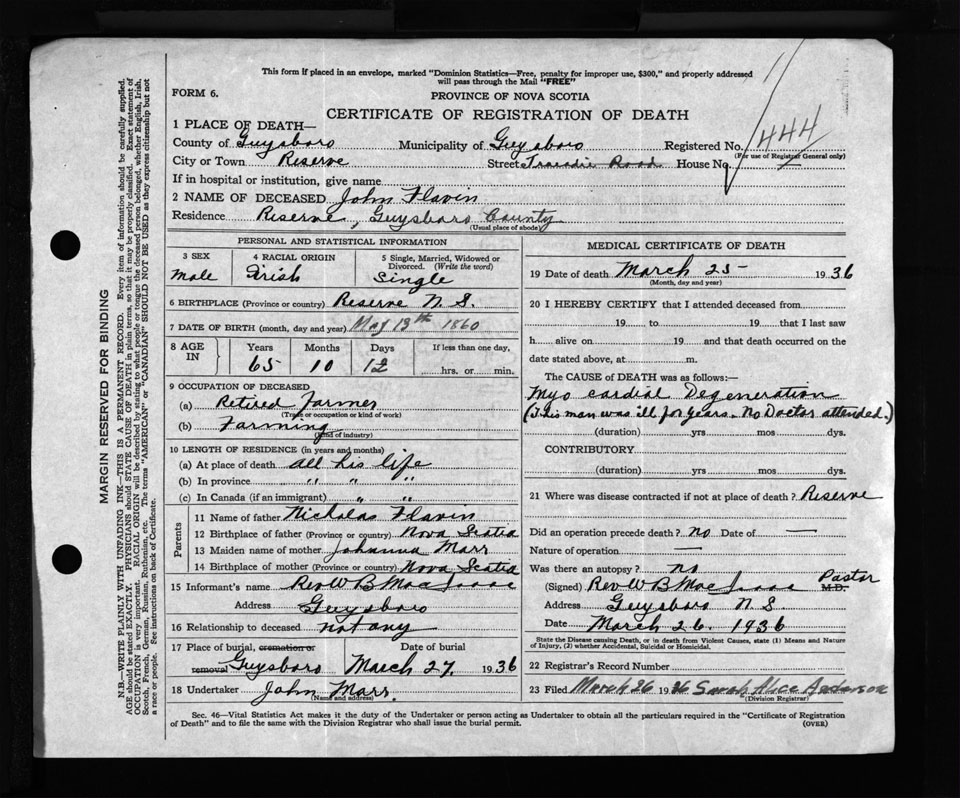 This form if placed in an envelope, marked "Dominion Statistics—Free, penalty for improper use, $300," and properly addressed
will pass through the Mail "FREE"
FORM 6.
PROVINCE OF NOVA SCOTIA
CERTIFICATE OF REGISTRATION OF DEATH
1 PLACE OF DEATH—
County of Guysboro Municipality of Guysboro Registered No. 444
(For use of Registrar General only)
City or Town Reserve Street Tracadie Road House No. —
If in hospital or institution, give name
2 NAME OF DECEASED John Flavin
Residence Reserve, Guysboro County
(Usual place of abode)
PERSONAL AND STATISTICAL INFORMATION
3 SEX 4 RACIAL ORIGIN 5 Single, Married, Widowed or
Divorced. (Write the word)
Male Irish Single
6 BIRTHPLACE (Province or country) Reserve N. S.
7 DATE OF BIRTH (month, day and year) May 13th 1860
8 AGE IN Years Months Days If less than one day,
65 10 12 hrs. or min.
9 OCCUPATION OF DECEASED
(a) Retired Farmer
(Trade or occupation or kind of work)
(b) Farming
(Kind of industry)
10 LENGTH OF RESIDENCE (in years and months)
(a) At place of death all his life
(b) In province " " "
(c) In Canada (if an immigrant) " "
Parents
11 Name of father Nicholas Flavin
12 Birthplace of father (Province or country) Nova Scotia
13 Maiden name of mother Johanna Marr
14 Birthplace of mother (Province or country) Nova Scotia
15 Informant's name Rev W B MacIsaac
Address Guysboro
16 Relationship to deceased not any
17 Place of burial, cremation or Date of burial
removal Guysboro March 27 1936
18 Undertaker John Marr.
(Name and address)
MEDICAL CERTIFICATE OF DEATH
19 Date of death March 25 — 1936
(Month, day and year)
20 I HEREBY CERTIFY that I attended deceased from
19 to 19 that I last saw
h alive on 19 and that death occurred on the
date stated above, at m.
The CAUSE of DEATH was as follows:—
Myo cardial Degeneration
(This man was ill for years. No Doctor attended.)
(duration) yrs mos dys.
CONTRIBUTORY
(duration) yrs mos dys.
21 Where was disease contracted if not at place of death? Reserve
Did an operation precede death? No Date of —
Nature of operation —
Was there an autopsy? no
(Signed) Rev W B MacIsaac Pastor M.D.
Address Guysboro N S
Date March 26. 1936
State the Disease causing Death, or in death from Violent Causes, state (1) Means and Nature
of Injury, (2) whether Accidental, Suicidal or Homicidal.
22 Registrar's Record Number
23 Filed March 26 1936 Sarah Alice Anderson
(Division Registrar)
Sec. 46—Vital Statistics Act makes it the duty of the Undertaker or person acting as Undertaker to obtain all the particulars required in the "Certificate of Registration
of Death" and to file the same with the Division Registrar who shall issue the burial permit. (OVER)
MARGIN RESERVED FOR BINDING
N.B.—WRITE PLAINLY WITH UNFADING INK—THIS IS A PERMANENT RECORD. Every item of information should be carefully supplied.
AGE should be stated EXACTLY. PHYSICIANS should STATE CAUSE OF DEATH in plain terms, so that it may be properly classified. Exact statement of
OCCUPATION is very important. RACIAL ORIGIN will be described by stating to what people or tongue the deceased person belonged, whether English, Irish,
Scotch, French, German, Russian, Ruthenian, etc. The terms "AMERICAN" or "CANADIAN" SHOULD NOT BE USED as they express citizenship but not
a race or people. See instructions on back of Certificate.